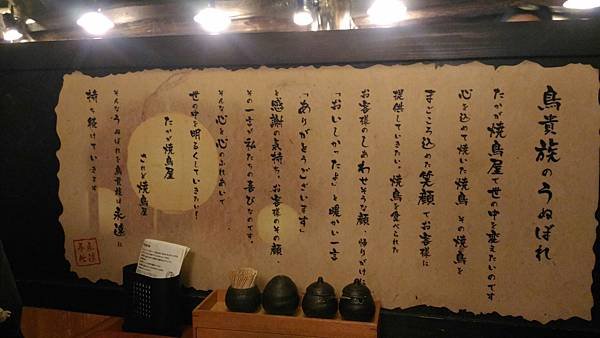 鳥貴族のうぬぼれ
たかが焼鳥屋で世の中を変えたいのです
心を込めて焼いた焼鳥、その焼鳥を
まごころ込めた笑顔でお客様に
提供していきたい。焼鳥を食べられた
お客様のしあわせそうな顔、帰りがけ
「おいしかったよ」と暖かい一言
「ありがとうございます」
と感謝の気持ち。お客様のその顔、
その一言が私たちの喜びなのです。
そんな心と心のふれあいで
世の中を明るくしていきたい！
たかが焼鳥屋
されど焼鳥屋
そんなうぬぼれを鳥貴族は永遠に
持ち続けていきます